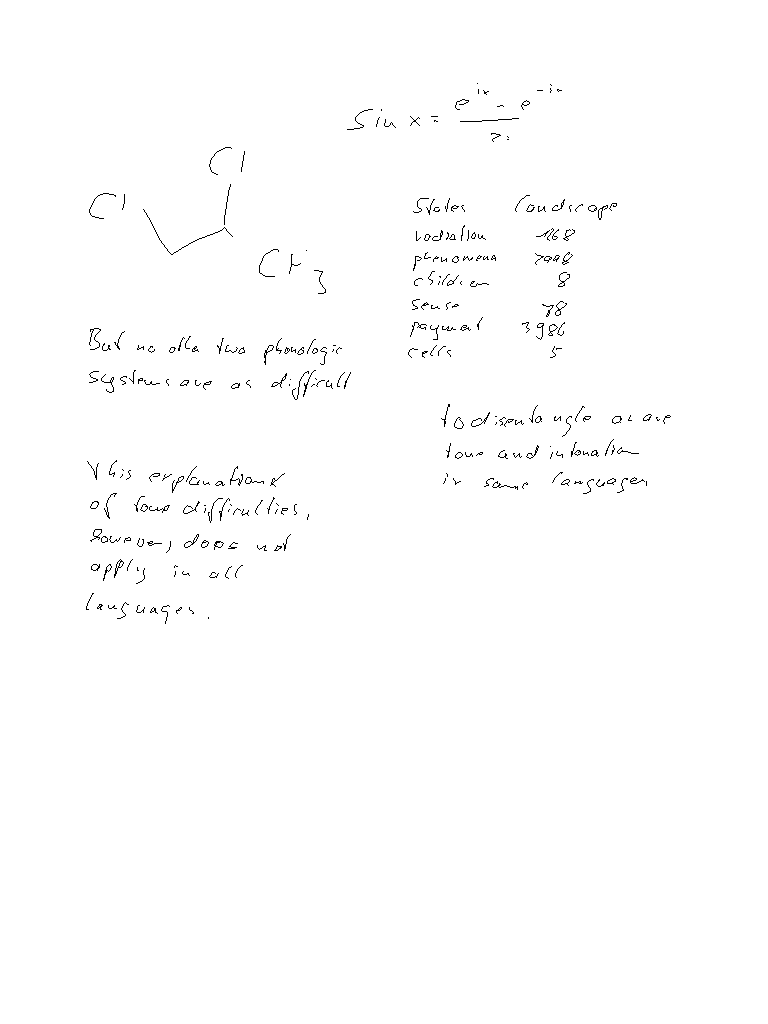 sin x = (e^ix - e^-ix) / 2i
Cl
Cl
CH3
States landscape
radiation 168
phenomena 7998
children 8
sense 78
payment 3986
cells 5
But no other two phonologic
systems are as difficult
to disentangle as are
tone and intonation
in some languages
This explanations
of tone difficulties,
however, does not
apply in all
languages.